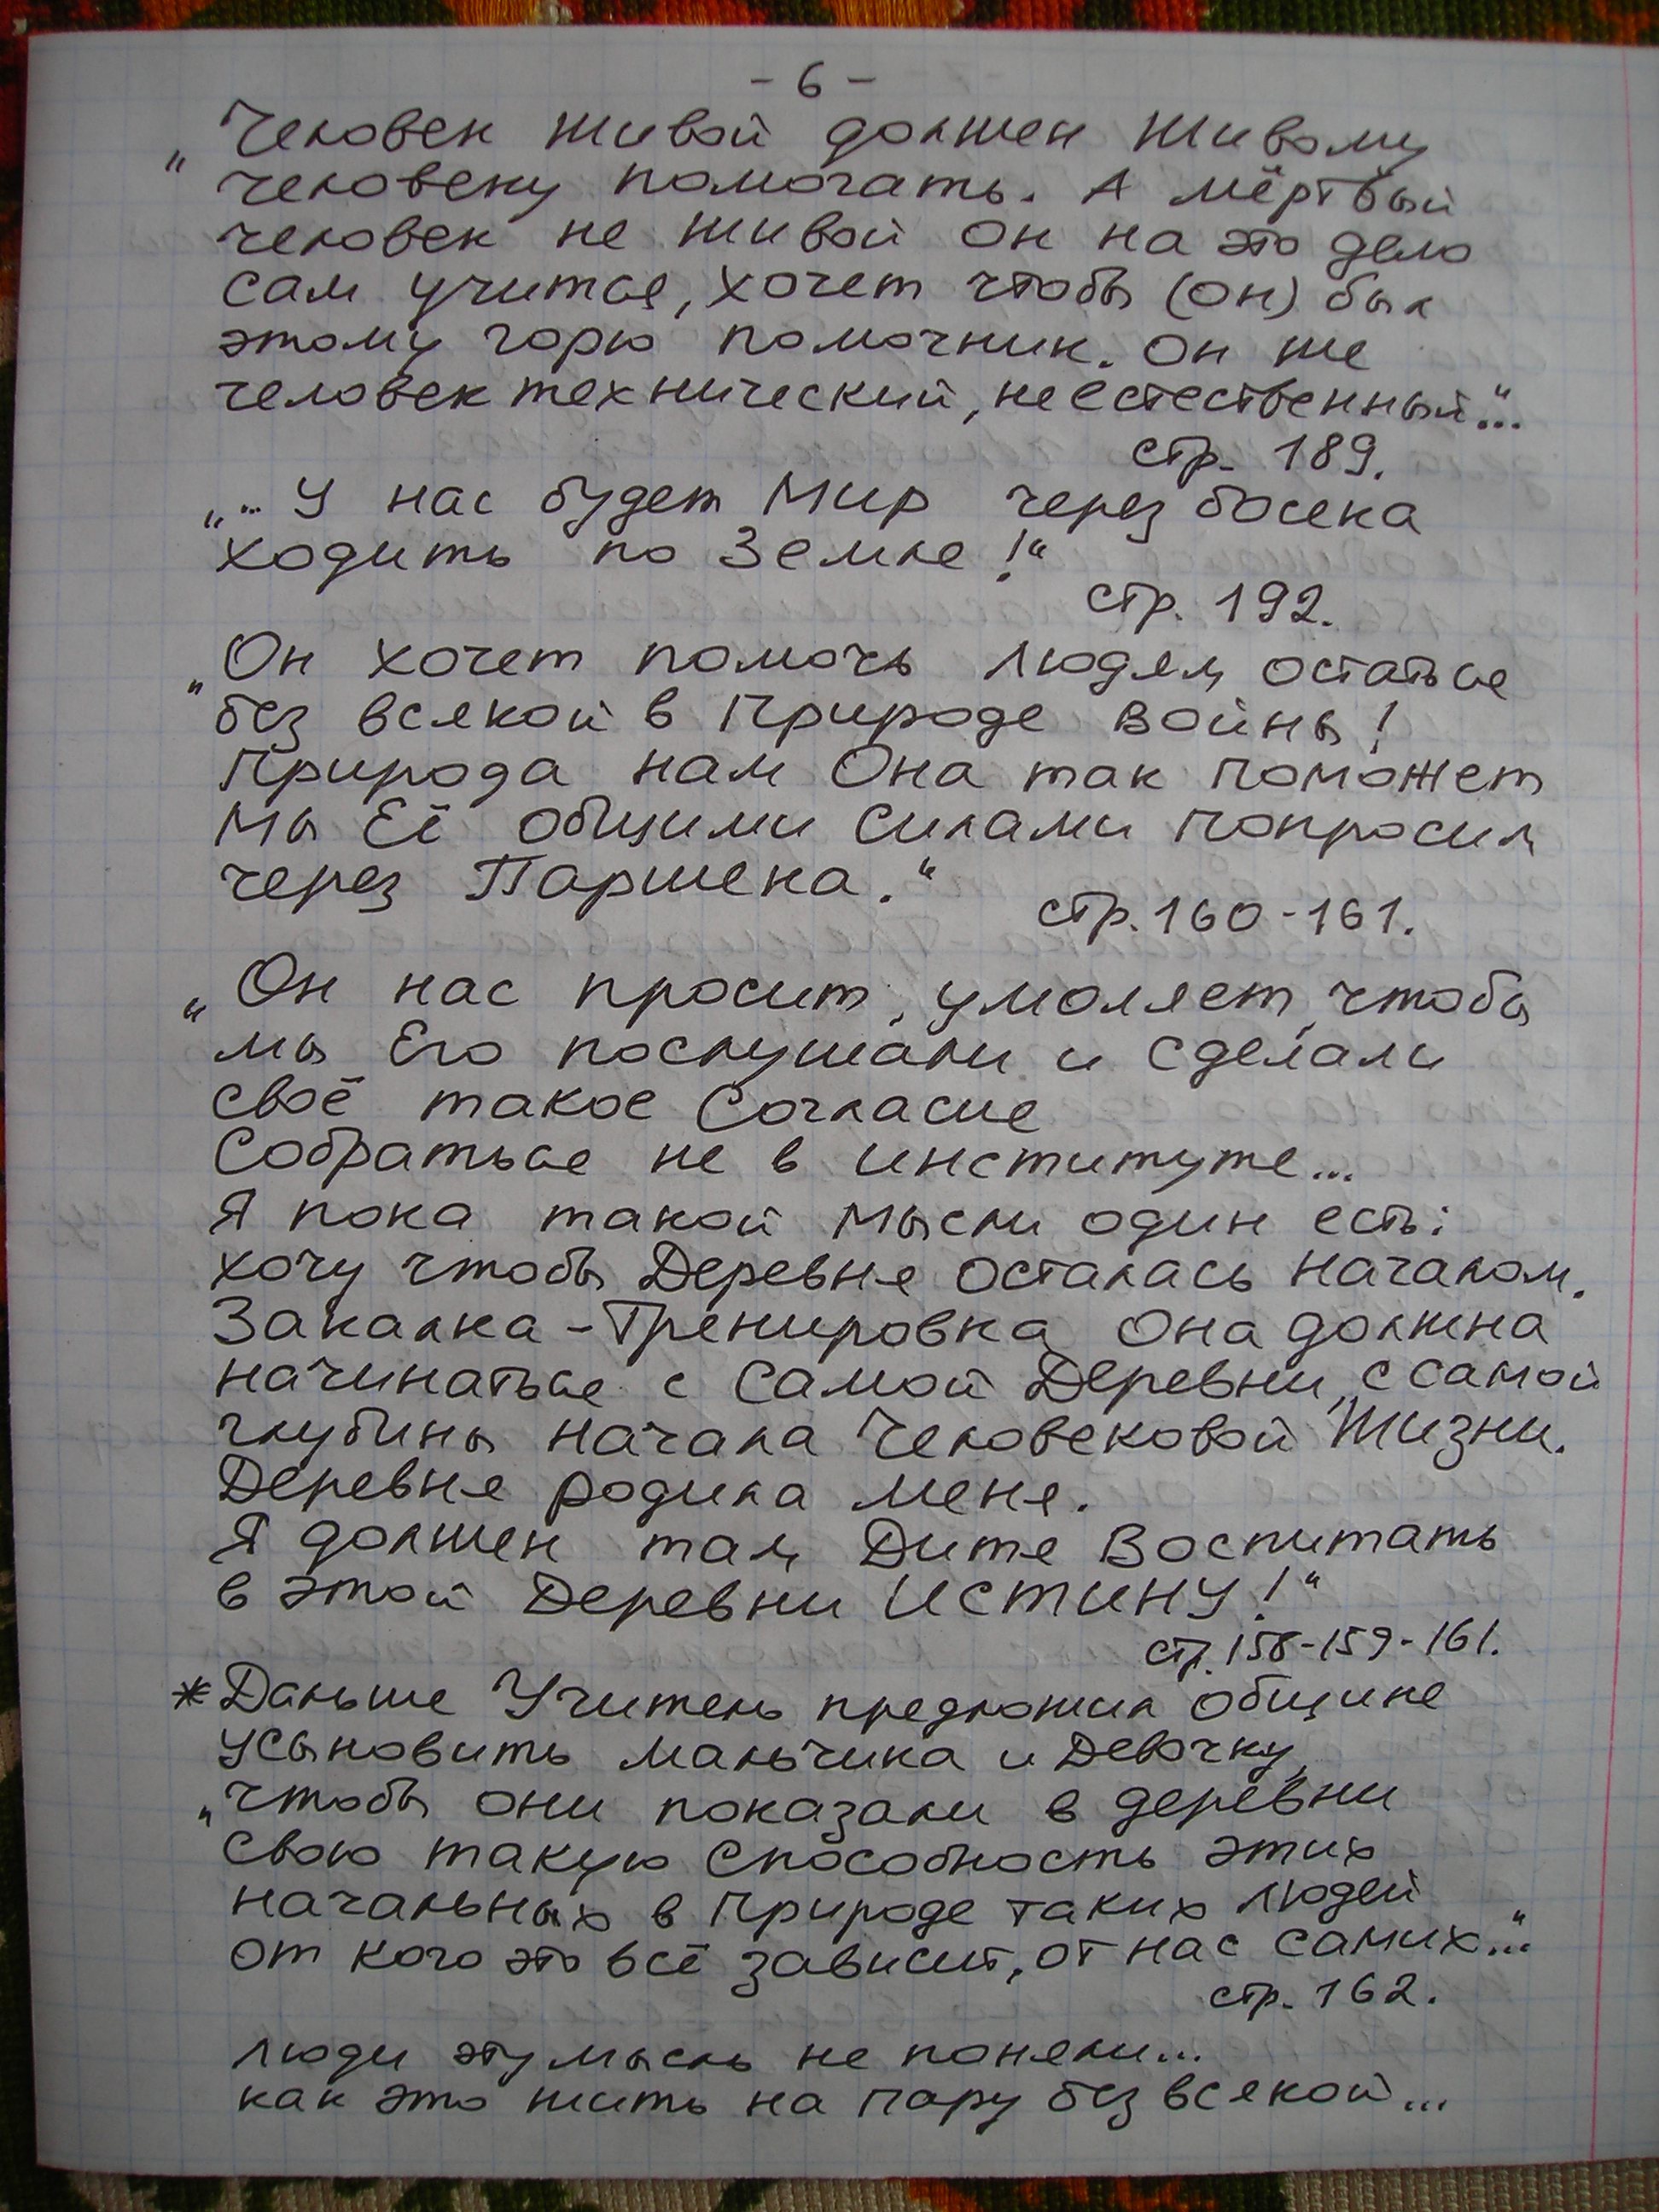 - 6 -
„Человек живой должен живому
человеку помогать. А мёртвый
человек не живой он на это дело
сам учится, хочет чтобы (он) был
этому горю помочник. Он же
человек технический, неестественный..."
стр. 189.
„...У нас будет Мир через босека
ходить по Земле!"
стр. 192.
„Он хочет помочь людям остаться
без всякой в Природе войны!
Природа нам Она так поможет
Мы Её общими силами попросим
через Паршека."
стр. 160-161.
„Он нас просит, умоляет, чтобы
мы Его послушали и сделали
своё такое Согласие
Собраться не в институте...
Я пока такой мысли один есть:
хочу чтобы Деревня осталась началом.
Закалка-Тренировка Она должна
начинаться с самой Деревни, с самой
глубины начала Человековой Жизни.
Деревня родила меня.
Я должен там Дитя Воспитать
в этой Деревни ИСТИНУ!"
стр. 158-159-161.
* Дальше Учитель предложил общине
усыновить мальчика и девочку,
„чтобы они показали в деревни
свою такую способность этих
начальных в Природе таких людей
от кого это всё зависит, от нас самих..."
стр. 162.
люди эту мысль не поняли...
как это жить на пару без всякой...